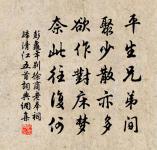 平生兄弟間
聚少散亦多
欲作對床夢
奈此往復何
彭龜年別徐商老奉祠
歸清江五首詞典網集